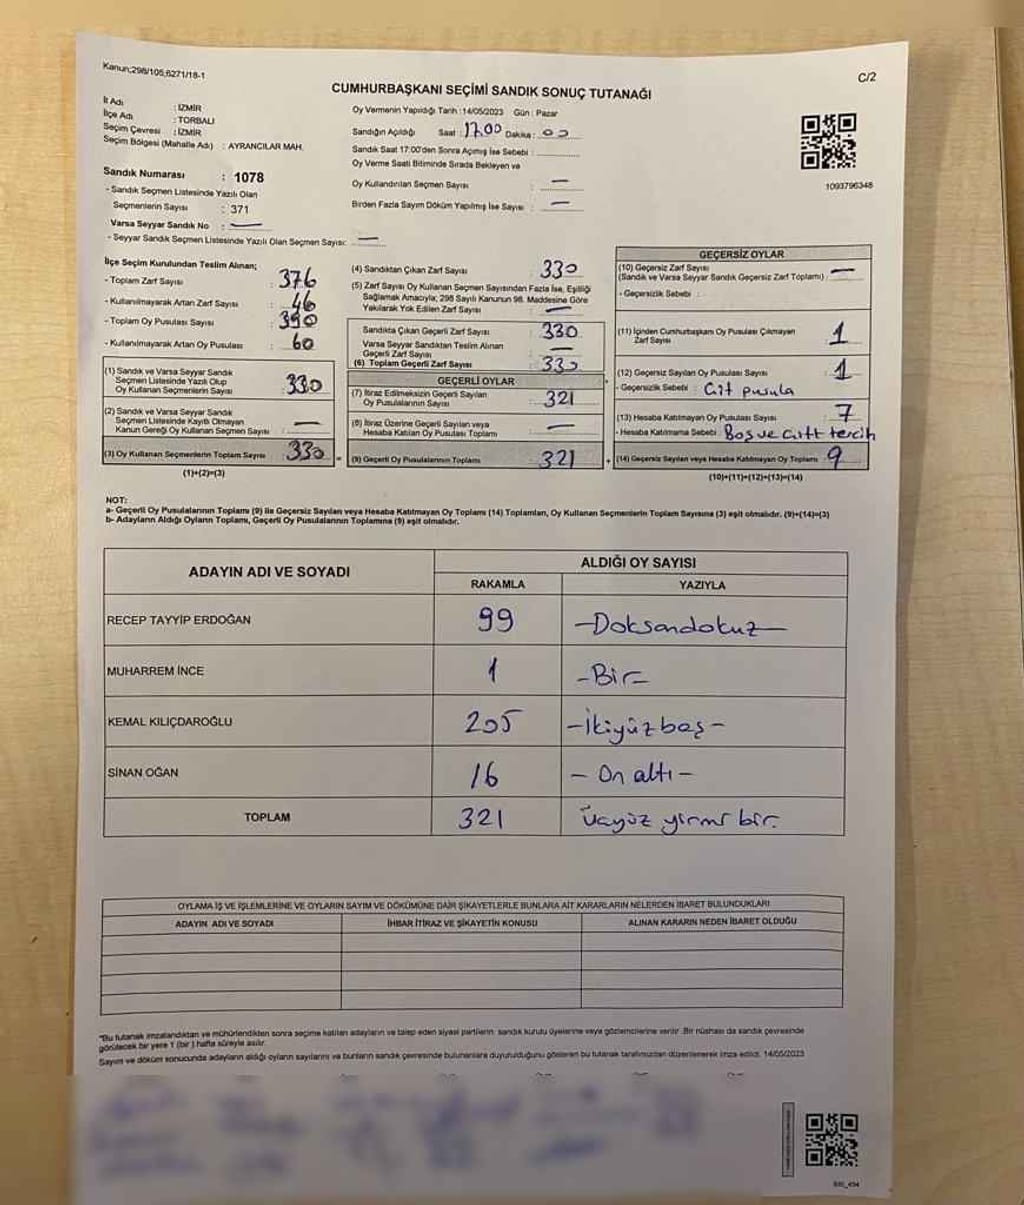 Kanun;298/105,6271/18-1
C/2
CUMHURBAŞKANI SEÇİMİ SANDIK SONUÇ TUTANAĞI
İl Adı : İZMİR
İlçe Adı : TORBALI
Seçim Çevresi : İZMİR
Seçim Bölgesi (Mahalle Adı) : AYRANCILAR MAH.
Oy Vermenin Yapıldığı Tarih :14/05/2023 Gün : Pazar
Sandığın Açıldığı Saat : 17.00 Dakika : 00
Sandık Saat 17:00'den Sonra Açılmış İse Sebebi :
Oy Verme Saati Bitiminde Sırada Bekleyen ve
Oy Kullandırılan Seçmen Sayısı : —
Birden Fazla Sayım Döküm Yapılmış İse Sayısı : —
1093796348
Sandık Numarası : 1078
- Sandık Seçmen Listesinde Yazılı Olan
Seçmenlerin Sayısı : 371
Varsa Seyyar Sandık No : —
- Seyyar Sandık Seçmen Listesinde Yazılı Olan Seçmen Sayısı: —
İlçe Seçim Kurulundan Teslim Alınan;
- Toplam Zarf Sayısı : 376
- Kullanılmayarak Artan Zarf Sayısı : 46
- Toplam Oy Pusulası Sayısı : 390
- Kullanılmayarak Artan Oy Pusulası : 60
(1) Sandık ve Varsa Seyyar Sandık
Seçmen Listesinde Yazılı Olup
Oy Kullanan Seçmenlerin Sayısı : 330
(2) Sandık ve Varsa Seyyar Sandık
Seçmen Listesinde Kayıtlı Olmayan
Kanun Gereği Oy Kullanan Seçmen Sayısı : —
(3) Oy Kullanan Seçmenlerin Toplam Sayısı : 330
(1)+(2)=(3)
(4) Sandıktan Çıkan Zarf Sayısı : 330
(5) Zarf Sayısı Oy Kullanan Seçmen Sayısından Fazla İse, Eşitliği
Sağlamak Amacıyla; 298 Sayılı Kanunun 98. Maddesine Göre
Yakılarak Yok Edilen Zarf Sayısı : —
Sandıkta Çıkan Geçerli Zarf Sayısı : 330
Varsa Seyyar Sandıktan Teslim Alınan
Geçerli Zarf Sayısı : —
(6) Toplam Geçerli Zarf Sayısı : 330
GEÇERLİ OYLAR
(7) İtiraz Edilmeksizin Geçerli Sayılan
Oy Pusulalarının Sayısı : 321
(8) İtiraz Üzerine Geçerli Sayılan veya
Hesaba Katılan Oy Pusulaları Toplamı : —
(9) Geçerli Oy Pusulalarının Toplamı : 321
GEÇERSİZ OYLAR
(10) Geçersiz Zarf Sayısı
(Sandık ve Varsa Seyyar Sandık Geçersiz Zarf Toplamı) : —
- Geçersizlik Sebebi :
(11) İçinden Cumhurbaşkanı Oy Pusulası Çıkmayan
Zarf Sayısı : 1
(12) Geçersiz Sayılan Oy Pusulası Sayısı : 1
- Geçersizlik Sebebi : Çift pusula
(13) Hesaba Katılmayan Oy Pusulası Sayısı : 7
- Hesaba Katılmama Sebebi : Boş ve çift tercih
(14) Geçersiz Sayılan veya Hesaba Katılmayan Oy Toplamı : 9
(10)+(11)+(12)+(13)=(14)
NOT:
a- Geçerli Oy Pusulalarının Toplamı (9) ile Geçersiz Sayılan veya Hesaba Katılmayan Oy Toplamı (14) Toplamları, Oy Kullanan Seçmenlerin Toplam Sayısına (3) eşit olmalıdır. (9)+(14)=(3)
b- Adayların Aldığı Oyların Toplamı, Geçerli Oy Pusulalarının Toplamına (9) eşit olmalıdır.
ADAYIN ADI VE SOYADI ALDIĞI OY SAYISI
RAKAMLA YAZIYLA
RECEP TAYYİP ERDOĞAN 99 -Doksandokuz-
MUHARREM İNCE 1 -Bir-
KEMAL KILIÇDAROĞLU 205 -İkiyüzbeş-
SİNAN OĞAN 16 - On altı -
TOPLAM 321 Üçyüz yirmi bir.
OYLAMA İŞ VE İŞLEMLERİNE VE OYLARIN SAYIM VE DÖKÜMÜNE DAİR ŞİKAYETLERLE BUNLARA AİT KARARLARIN NELERDEN İBARET BULUNDUKLARI
ADAYIN ADI VE SOYADI İHBAR İTİRAZ VE ŞİKAYETİN KONUSU ALINAN KARARIN NEDEN İBARET OLDUĞU
*Bu tutanak imzalandıktan ve mühürlendikten sonra seçime katılan adayların ve talep eden siyasi partilerin, sandık kurulu üyelerine veya gözlemcilerine verilir. Bir nüshası da sandık çevresinde
görülecek bir yere 1 (bir) hafta süreyle asılır.
Sayım ve döküm sonucunda adayların aldığı oyların sayılarını ve bunların sandık çevresinde bulunanlara duyurulduğunu gösteren bu tutanak tarafımızdan düzenlenerek imza edildi. 14/05/2023